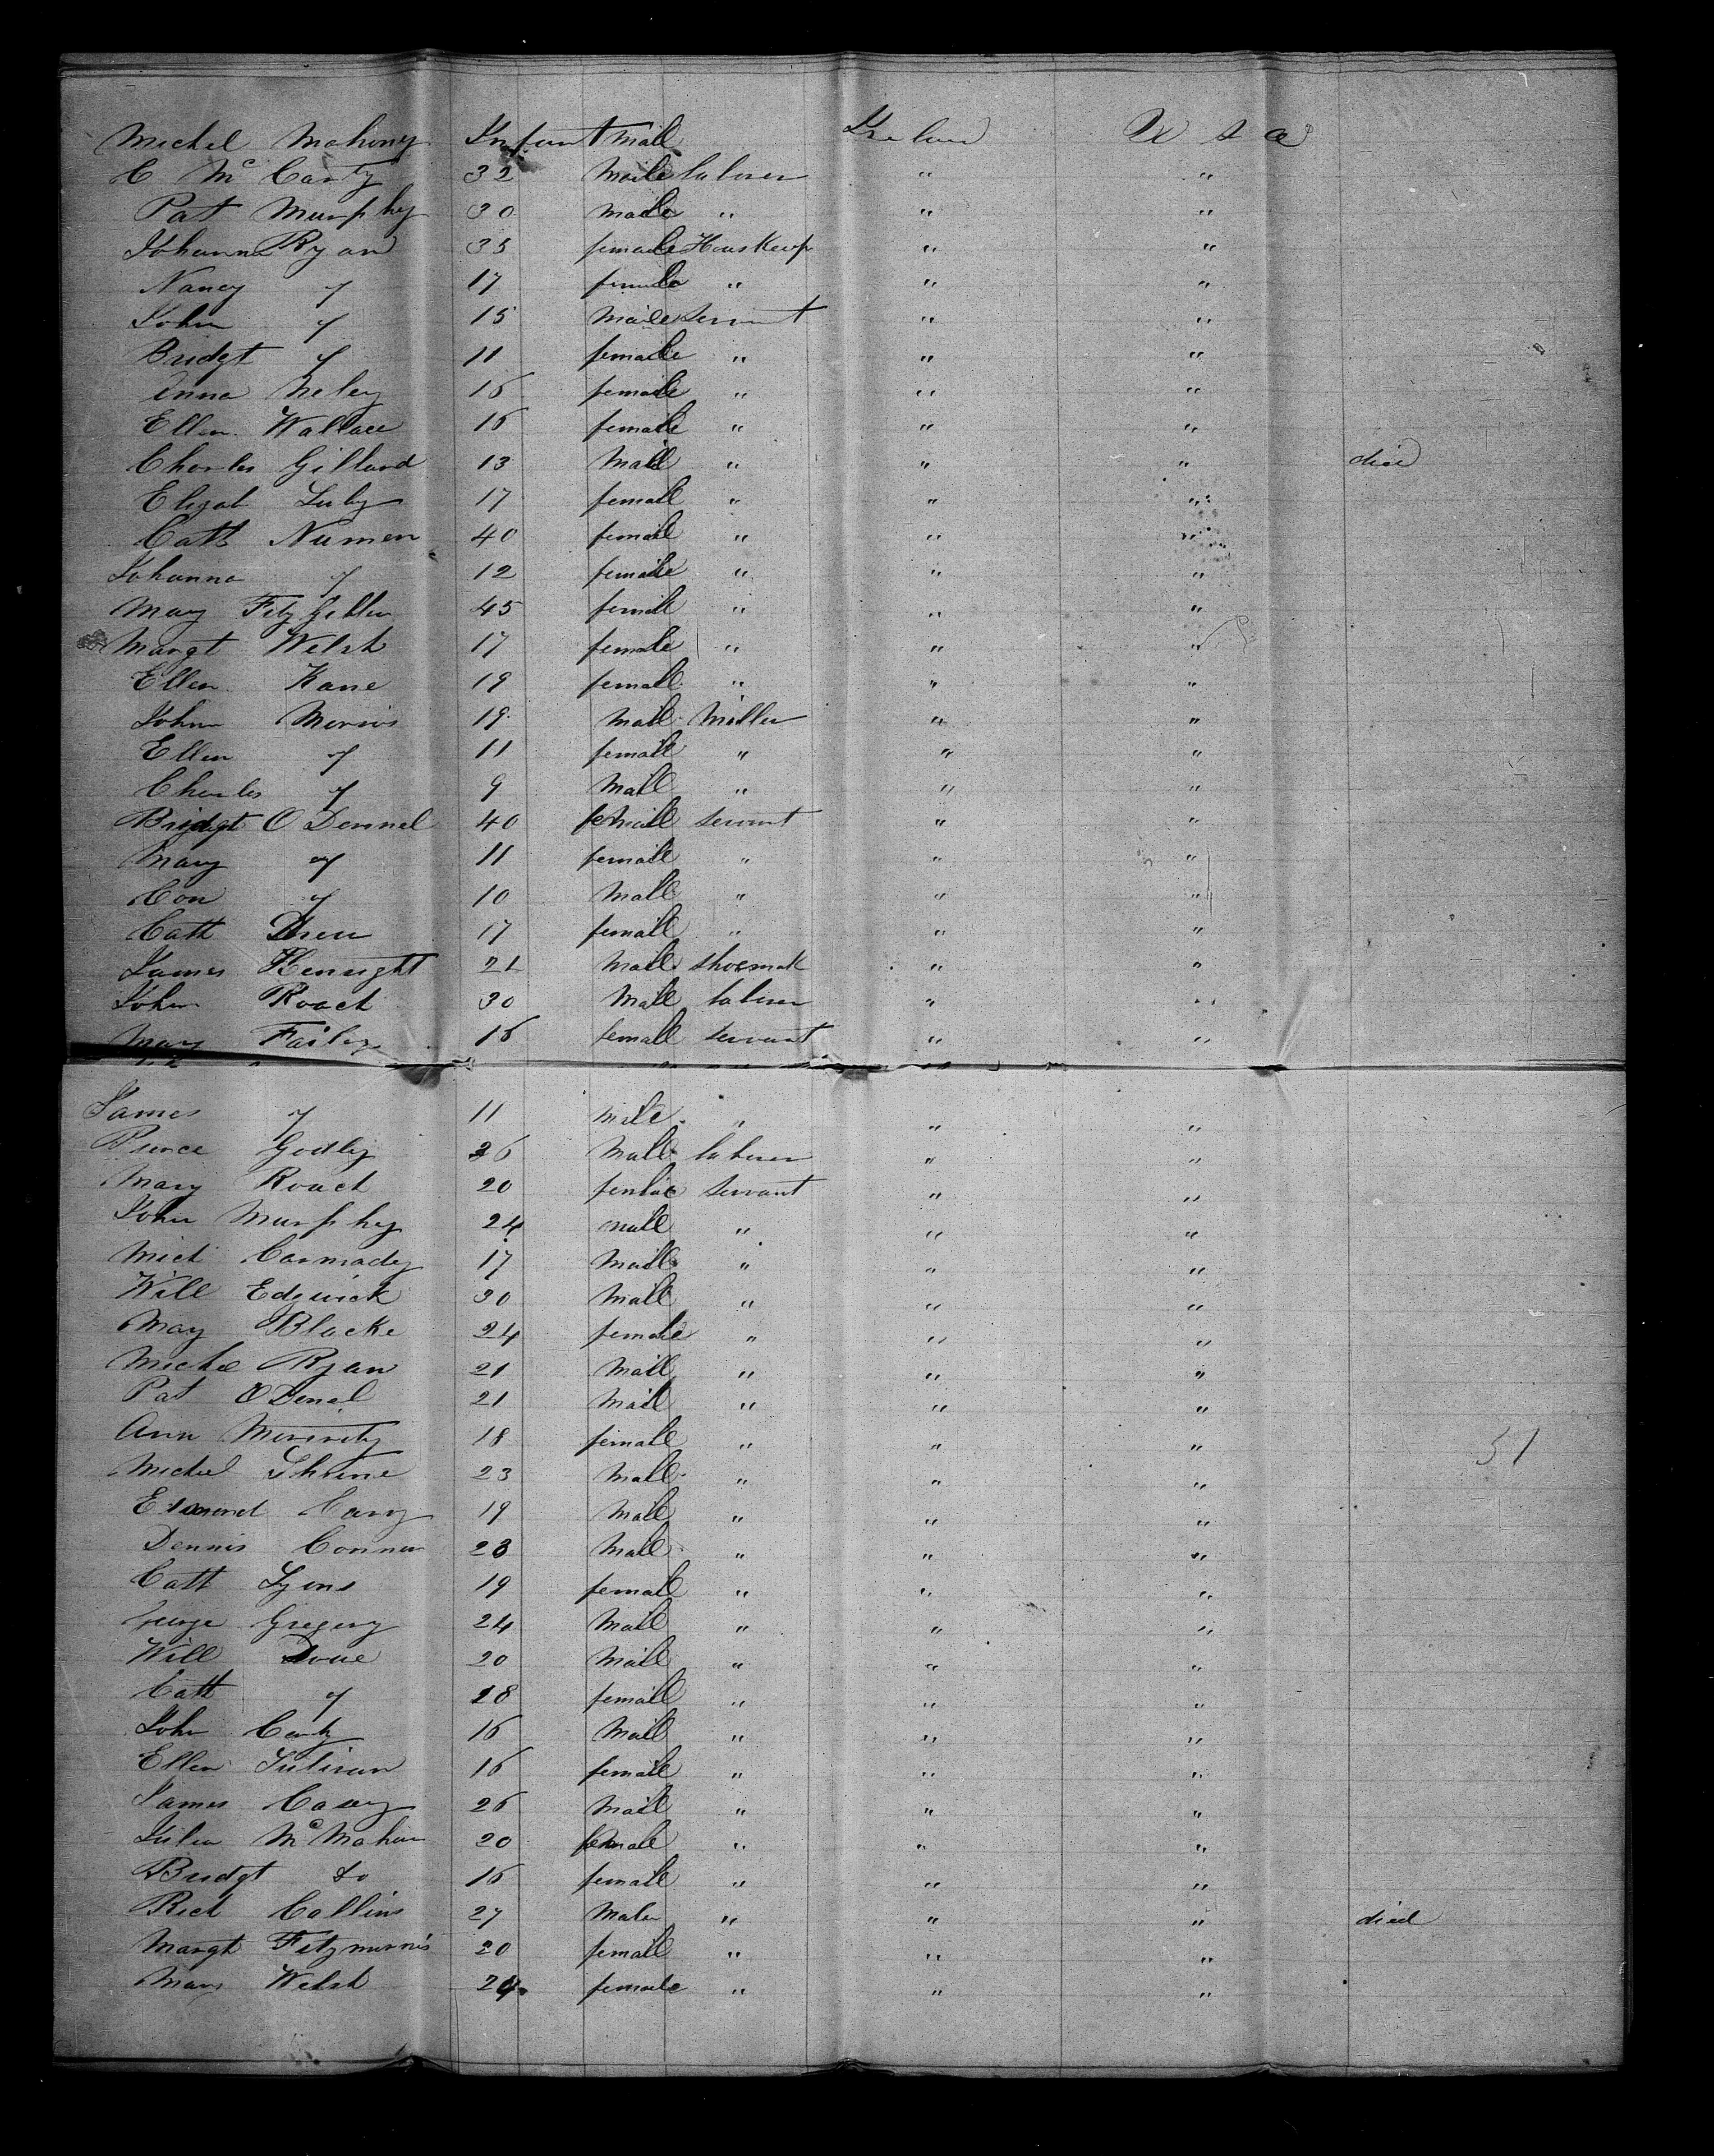 Michel Mahony Infant male Ireland U S A
C Mc Carty 32 Male laborer " "
Pat Murphy 30 male " " "
Johanna Ryan 35 female Houskeep " "
Nancy " 17 female " " "
John " 15 male servant " "
Bridgt " 11 female " " "
Anna Neley 16 female " " "
Ellen Wallace 16 female " " "
Charles Gillard 13 Male " " " died
Elizat 17 female " " "
Cath Numen 40 female " " "
Johanna " 12 female " " "
Mary Fitz Gibbon 45 female " " "
Margt Welsh 17 female " " "
Ellen Kane 19 female " " "
John Morris 19 male Miller " "
Ellen " 11 female " " "
Charles " 9 Male " " "
Bridgt O Dennel 40 female servant " "
Mary " 11 female " " "
Con " 10 Male " " "
Cath Drew 17 female " " "
James Henright 21 Male shoemak " "
John Roach 30 Male laborer " "
Mary Failey 16 female servant " "
James " 11 male " " "
Pierce Godley 26 Male laborer " "
Mary Roach 20 female servant " "
John Murphy 24 male " " "
Mich Carmady 17 Male " " "
Will Edgwick 30 Male " " "
May Blacke 24 female " " "
Michel Ryan 21 Male " " "
Pat O Denel 21 Male " " "
Ann Moririty 18 female " " "
51
Michel Shine 23 Male " " "
Edmond Carey 19 Male " " "
Dennis Conner 23 Male " " "
Catt Lyons 19 female " " "
George Gregory 24 Male " " "
Will Doue 20 Male " " "
Catt " 28 female " " "
John Canty 16 Male " " "
Ellen Sulivan 16 female " " "
James Casey 26 Male " " "
Julia Mc Mahon 20 female " " "
Bridgt do 16 female " " "
Rich Collins 27 Male " " " died
Margt Fitzmorris 20 female " " "
Mary Welsh 24 female " " "